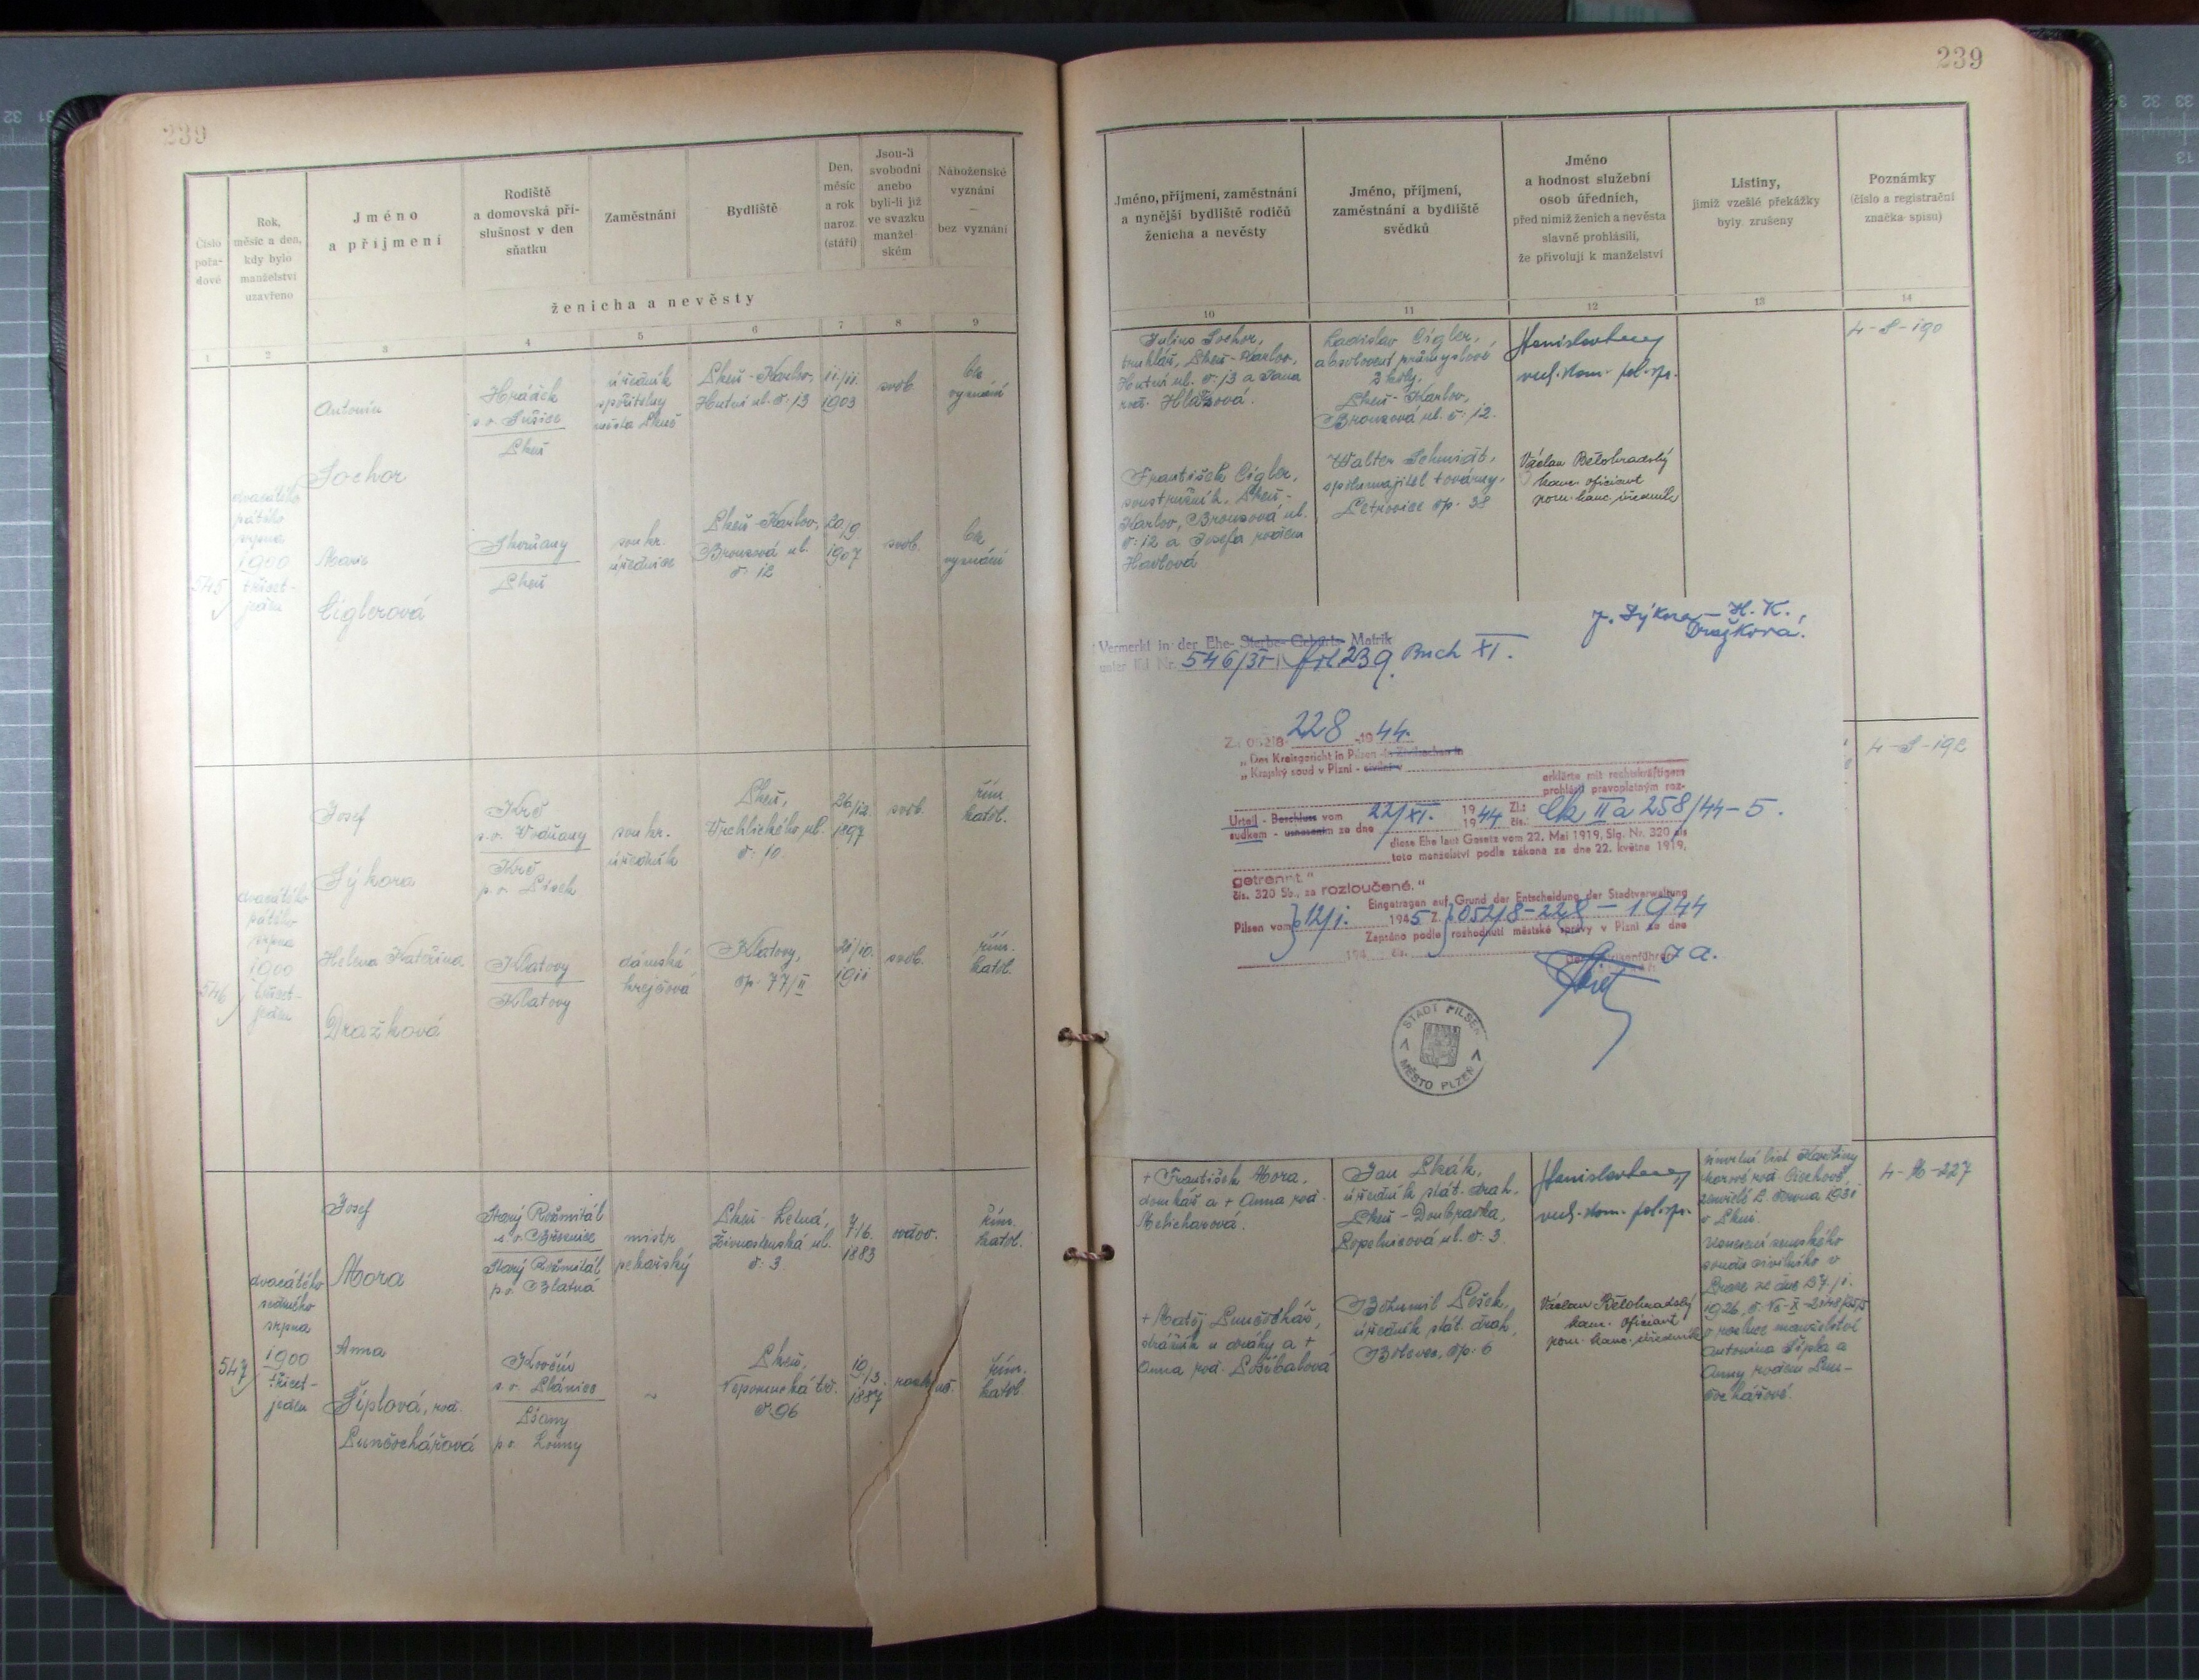 239
Číslo
pořa-
dové
Rok,
měsíc a den,
kdy bylo
manželství
uzavřeno
Jméno
a příjmení
Rodiště
a domovská pří-
slušnost v den
sňatku
Zaměstnání
Bydliště
Den,
měsíc
a rok
naroz.
(stáří)
Jsou-li
svobodni
anebo
byli-li již
ve svazku
manžel-
ském
Náboženské
vyznání
—
bez vyznání
ženicha a nevěsty
1 2 3 4 5 6 7 8 9
545
dvacátého
pátého
srpna
1900
třicet-
jeden
Antonín
Sochor
Hrádek
s. o. Sušice
Plzeň
úředník
spořitelny
města Plzně
Plzeň-Karlov,
Hutní ul. č. 13
11./11.
1903
svob.
bez
vyznání
Marie
Ciglerová
Skvrňany
Plzeň
soukr.
úřednice
Plzeň-Karlov,
Bronzová ul.
č. 12
20/9.
1907
svob.
bez
vyznání
546
dvacátého
pátého
srpna
1900
třicet-
jeden
Josef
Sýkora
Krč
s. o. Vodňany
Krč
p. o. Písek
soukr.
úředník
Plzeň,
Vrchlického ul.
č. 10
26/12.
1897
svob.
řím.
katol.
Helena Kateřina
Dražková
Klatovy
Klatovy
dámská
krejčová
Klatovy,
čp. 77/II
21/10.
1911
svob.
řím.
katol.
547
dvacátého
sedmého
srpna
1900
třicet-
jeden
Josef
Mora
Starý Rožmitál
s. o. Březnice
Starý Rožmitál
p. o. Blatná
mistr
pekařský
Plzeň-Letná,
Živnostenská ul.
č. 3
7/6.
1883
vdov.
řím.
katol.
Anna
Šiplová, roz.
Punčochářová
s. o. Plánice
Pšany
p. o. Louny
~
Plzeň,
Nepomucká tř.
č. 96
10/3.
1887
rozluč.
řím.
katol.
239
Jméno, příjmení, zaměstnání
a nynější bydliště rodičů
ženicha a nevěsty
Jméno, příjmení,
zaměstnání a bydliště
svědků
Jméno
a hodnost služební
osob úředních,
před nimiž ženich a nevěsta
slavně prohlásili,
že přivolují k manželství
Listiny,
jimiž vzešlé překážky
byly zrušeny
Poznámky
(číslo a registrační
značka spisu)
10 11 12 13 14
Julius Sochor,
truhlář, Plzeň-Karlov,
Hutní ul. č. 13 a Jana
roz. Hlaszová.
Ladislav Cigler,
absolvent průmyslové
školy,
Plzeň-Karlov,
Bronzová ul. č. 12.
4-S-190
František Cigler,
soustružník, Plzeň-
Karlov, Bronzová ul.
č. 12 a Josefa rozen
Havlová
Walter Schmidt,
spolumajitel továrny,
Petrovice čp. 38
Václav Bělohradský
kanc. oficiant
pom. kanc. úředník
J. Sýkora — H. K.
Dražková.
Vermerkt in der Ehe- Sterbe- Geburts- Matrik
unter lfd Nr. 546/31 fol 239 Buch XI.
4-S-192
Z.: 05218- 228 -1944.
„Das Kreisgericht in Pilsen - in Zivilsachen in
„Krajský soud v Plzni - civilní v
erklärte mit rechtskräftigem
prohlásil pravoplatným roz-
Urteil - Beschluss vom 22/XI. 1944 Zl.: Ck IIa 258/44-5.
sudkem - usnesením ze dne 1944 čis.:
diese Ehe laut Gesetz vom 22. Mai 1919, Slg. Nr. 320 als
toto manželství podle zákona ze dne 22. května 1919,
getrennt“
čis. 320 Sb., za rozloučené.“
Eingetragen auf Grund der Entscheidung der Stadtverwaltung
Pilsen vom 12/1. 1945 Z. 05218-228-1944
Zapsáno podle rozhodnutí městské správy v Plzni ze dne
194 čis.
STADT PILSEN
MĚSTO PLZEŇ
+ František Mora,
domkář a + Anna roz.
Melicharová.
Jan Pták,
úředník stát. drah,
Plzeň-Doubravka,
Popelnicová ul. č. 3.
4-M-227
úmrtní list Karoliny
zemřelé 2. února 1931
v Plzni.
Usnesení zemského
soudu civilního v
Praze ze dne 27./1.
o rozluce manželství
Antonína Šípla a
Anny rozem Pun-
čochářové.
+ Matěj Punčochář,
strážník u dráhy a +
Anna roz.
Bohumil Pešek,
úředník stát. drah,
Bolevec, čp. 6
Václav Bělohradský
kanc. oficiant
pom. kanc. úředník